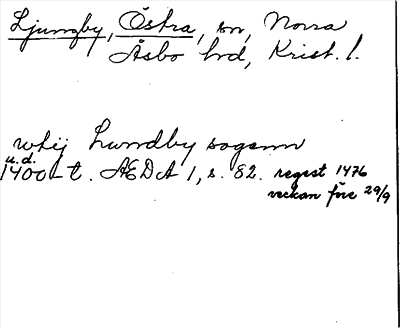 Ljungby, Östra, sn, Norra
Åsbo hd, Krist. l.
utij Lundby sogenn
u.d.
1400-t. ÆDA 1, s. 82. regest 1476
veckan före 29/9